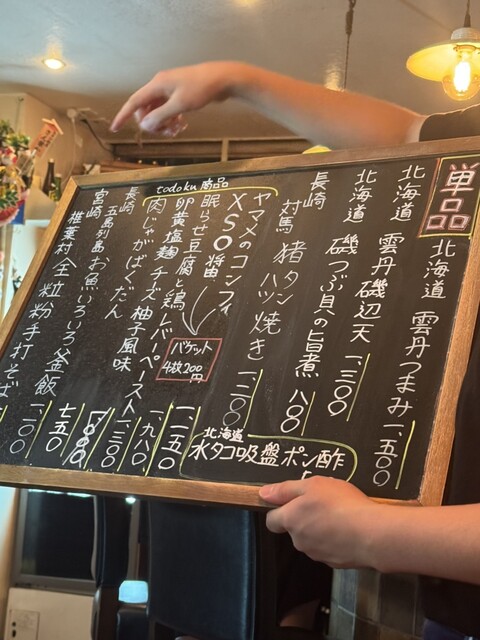 単品
北海道 雲丹つまみ 一、五〇〇
北海道 雲丹磯辺天 一、三〇〇
北海道 磯つぶ貝の旨煮 八〇〇
長崎 対馬 猪タンハツ焼き 一、二〇〇
todoku商品
ヤマメのコンフィ
XSO醤油
眠らせ豆腐と鶏レバーペースト 一、一五〇
卵黄塩麹チーズ 柚子風味 一、九八〇
肉じゃがばくだん 一、三〇〇
バケット
4枚200円
長崎 五島列島 お魚いろいろ釜飯
宮崎 椎葉村 全粒粉手打そば 一、一〇〇
七五〇
北海道
水タコ吸盤ポン酢